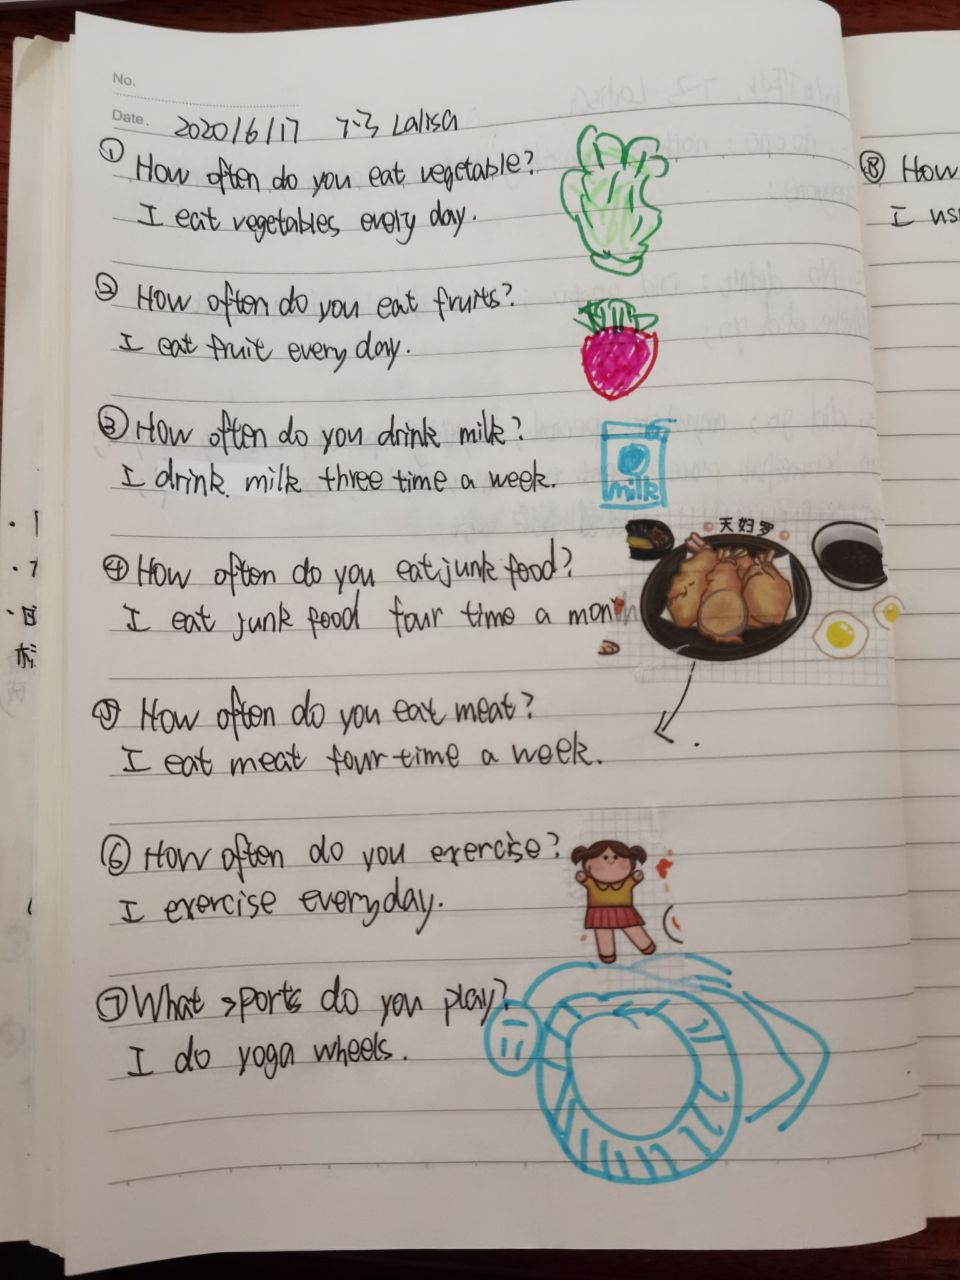 No.
Date. 2020/6/17 7.3 Lalisa
① How often do you eat vegetable?
I eat vegetables every day.
② How often do you eat fruits?
I eat fruit every day.
③ How often do you drink milk?
I drink milk three time a week.
milk
天妇罗
④ How often do you eat junk food?
I eat junk food four time a month
⑤ How often do you eat meat?
I eat meat four time a week.
⑥ How often do you exercise?
I exercise everyday.
⑦ What sports do you play?
I do yoga wheels.
⑧ How
I